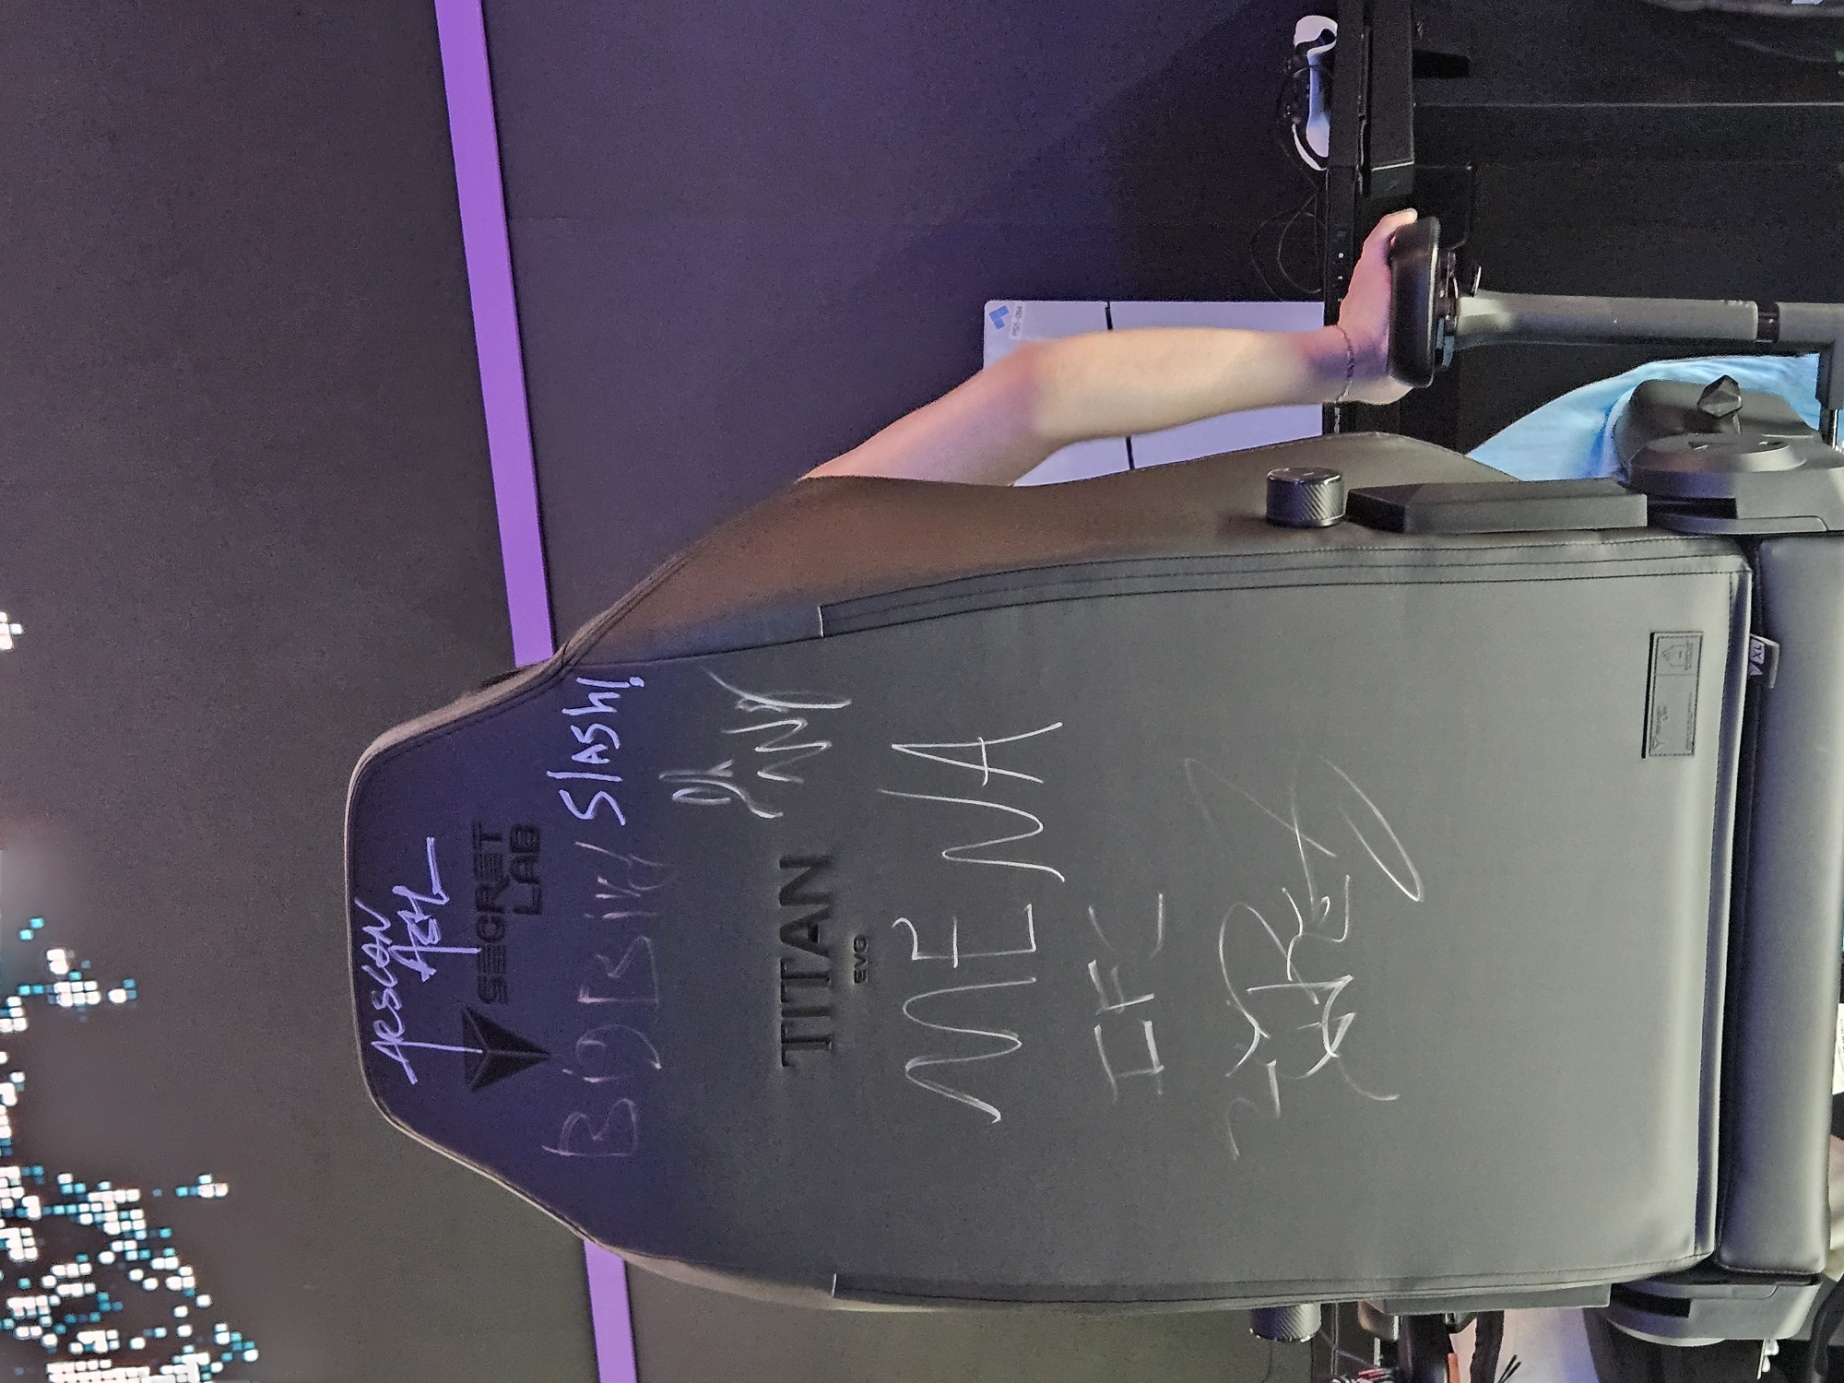 ARSLAN
ASH
SECRET
LAB
BigBird
Slash!
TITAN
EVO
MENA
EFC
XL
PS5-094